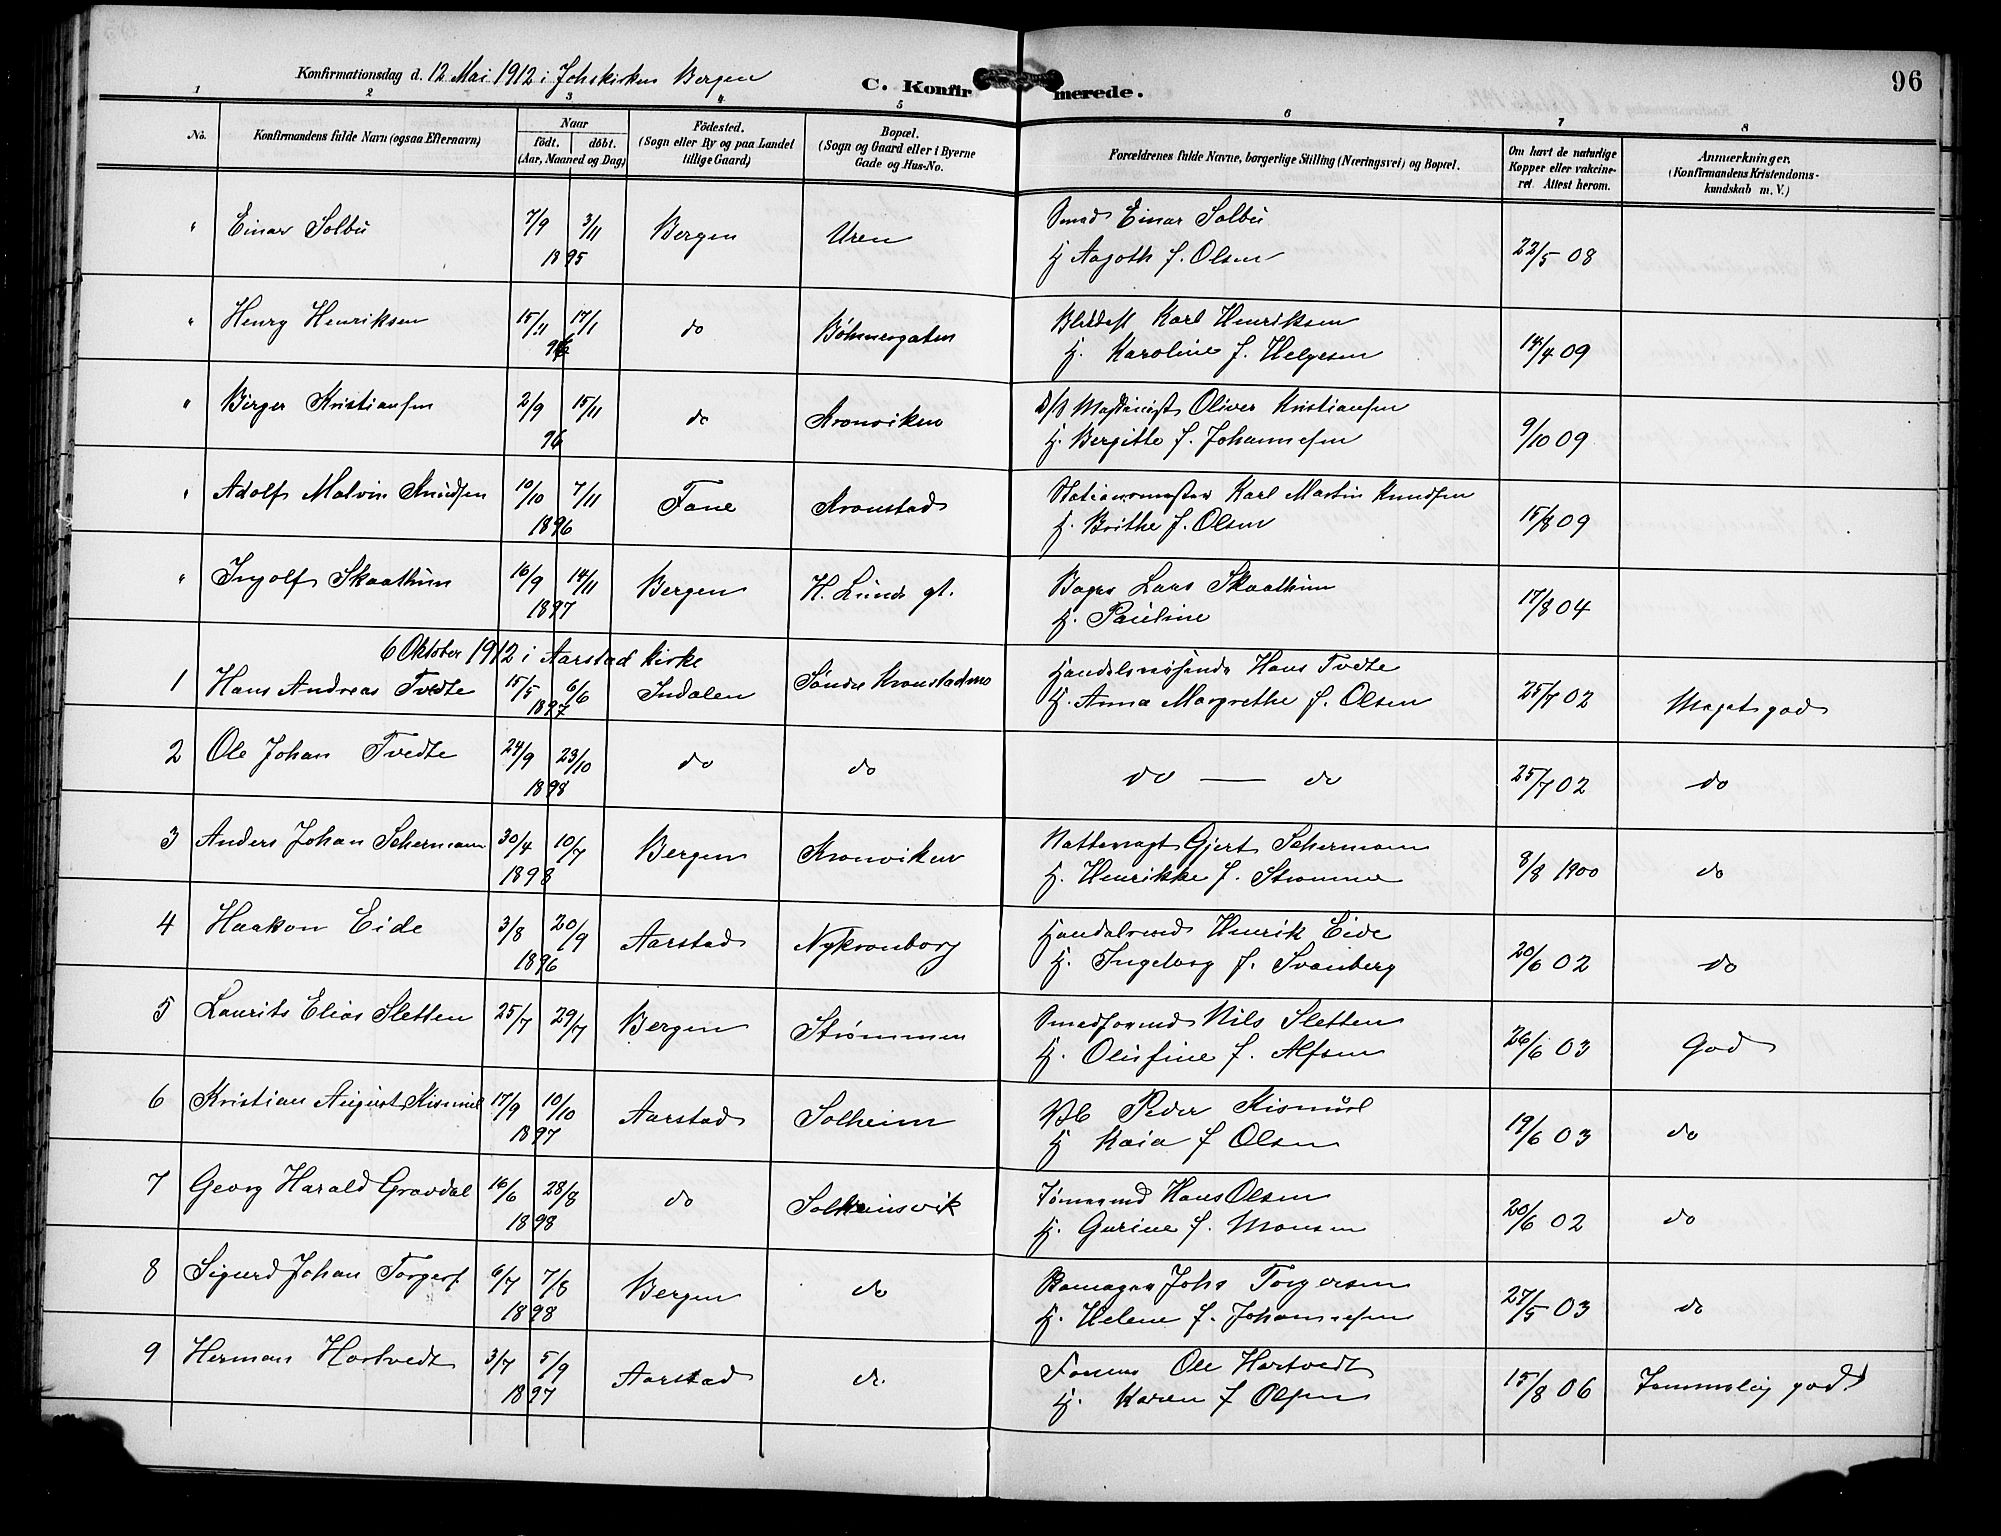 96
Konfirmationsdag d. 12 Mai 1912 i Johskirken Bergen
C. Konfirmerede.
1 2 3 4 5 6 7 8
No. Konfirmandens fulde Navn (ogsaa Efternavn) Naar født. døbt. (Aar, Maaned og Dag) Födested. (Sogn eller By og paa Landet tillige Gaard) Bopæl. (Sogn og Gaard eller i Byerne Gade og Hus-No. Forældrenes fulde Navne, borgerlige Stilling (Næringsvei) og Bopæl. Om havt de naturlige Kopper eller vakcineret. Attest herom. Anmærkninger. (Konfirmandens Kristendomskundskab m. V.)
" Einar Solbu 7/9 3/11 1895 Bergen Uren Smed Einar Solbu
H Aagoth f. Olsen 22/5 08
" Henry Henriksen 15/11 17/1 96 do Bøhmergaten Karl Henriksen
H. Karoline f. Helgesen 14/4 09
" Birger Kristiansen 2/9 15/11 96 do Kronviken Maskinist Oliver Kristiansen
H. Bergitte f. Johannesen 9/10 09
" Adolf Malvin Knudsen 10/10 7/11 1896 Fane Kronstad Stationsmester Karl Martin Knudsen
H. Brithe f. Olsen 15/8 09
" Ingolf Skaathun 16/9 14/11 1897 Bergen H. Lunds gt. Bager Lars Skaathun
H. Pauline 17/8 04
6 Oktober 1912 i Aarstad Kirke
1 Hans Andreas Tvedte 15/5 6/6 1897 Indalen Søndre Kronstadmo Handelsreisende Hans Tvedte
H. Anna Margrethe f. Olsen 25/7 02 Meget god
2 Ole Johan Tvedte 24/9 23/10 1898 do do do — do 25/7 02 do
3 Anders Johan Schermann 30/4 10/7 1898 Bergen Kronviken Nattevagt Gjert Schermann
H. Henrikke f. Strømme 8/8 1900 do
4 Haakon Eide 3/8 20/9 1896 Aarstad Nykronborg Handelsmd Henrik Eide
H. Ingeborg f. Svanberg 20/6 02 do
5 Laurits Elias Sletten 25/7 29/7 Bergen Strømmen Smedformd Nils Sletten
H. Olufine f. Alfsen 26/6 03 God
6 Kristian August Kismul 17/9 10/10 1897 Aarstad Solheim Peder Kismul
H Kaia f Olsen 19/6 03 do
7 Georg Harald Gravdal 16/6 28/8 1898 do Solheimsvik Tømmermd Hans Olsen
H. Gurine f. Monsen 20/6 02 do
8 Sigurd Johan Torgers. 6/7 7/8 1898 Bergen do Johs Torgersen
H. Helene f. Johannesen 27/5 03 do
9 Herman Hartvedt 3/7 5/9 1897 Aarstad do. Ole Hartvedt
H. Karen f Olsen 15/8 06 Temmelig god